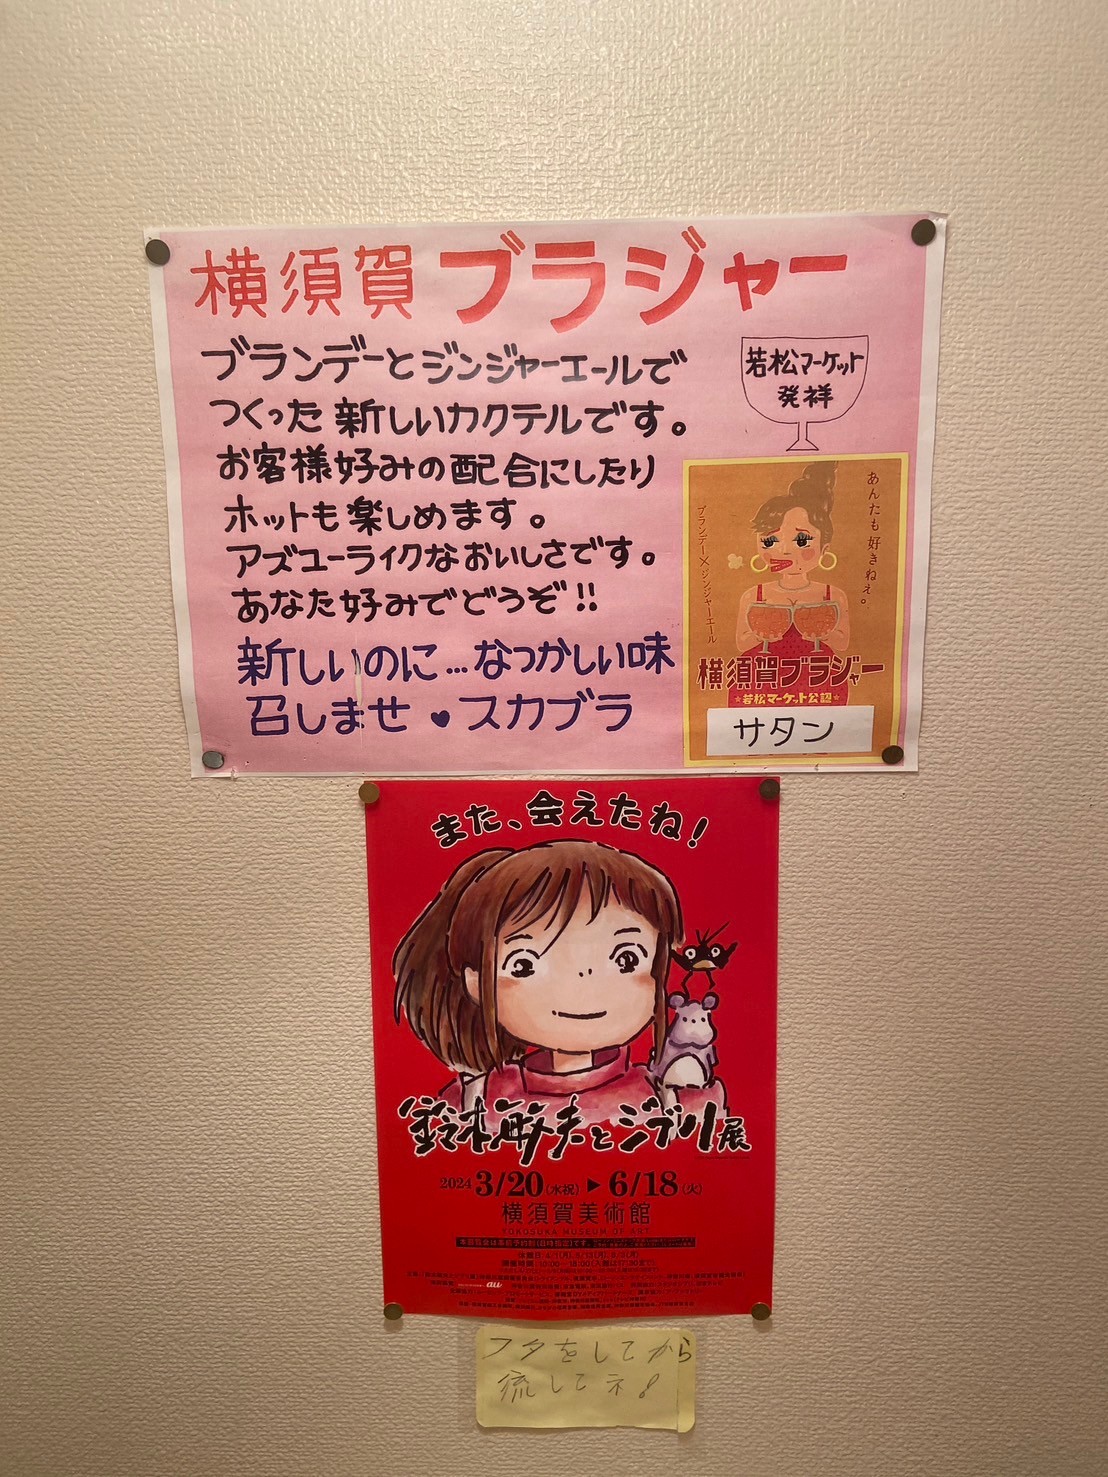 横須賀ブラジャー
ブランデーとジンジャーエールで
つくった新しいカクテルです。
お客様好みの配合にしたり
ホットも楽しめます。
アズユーライクなおいしさです。
あなた好みでどうぞ!!
新しいのに…なつかしい味
召しませ♥スカブラ
若松マーケット
発祥
あんたも好きねえ。
ブランデー×ジンジャーエール
横須賀ブラジャー
☆若松マーケット公認☆
サタン
また、会えたね!
鈴木敏夫とジブリ展
2024 3/20(水祝)▶6/18(火)
横須賀美術館
YOKOSUKA MUSEUM OF ART
au
フタをしてから
流してネ!